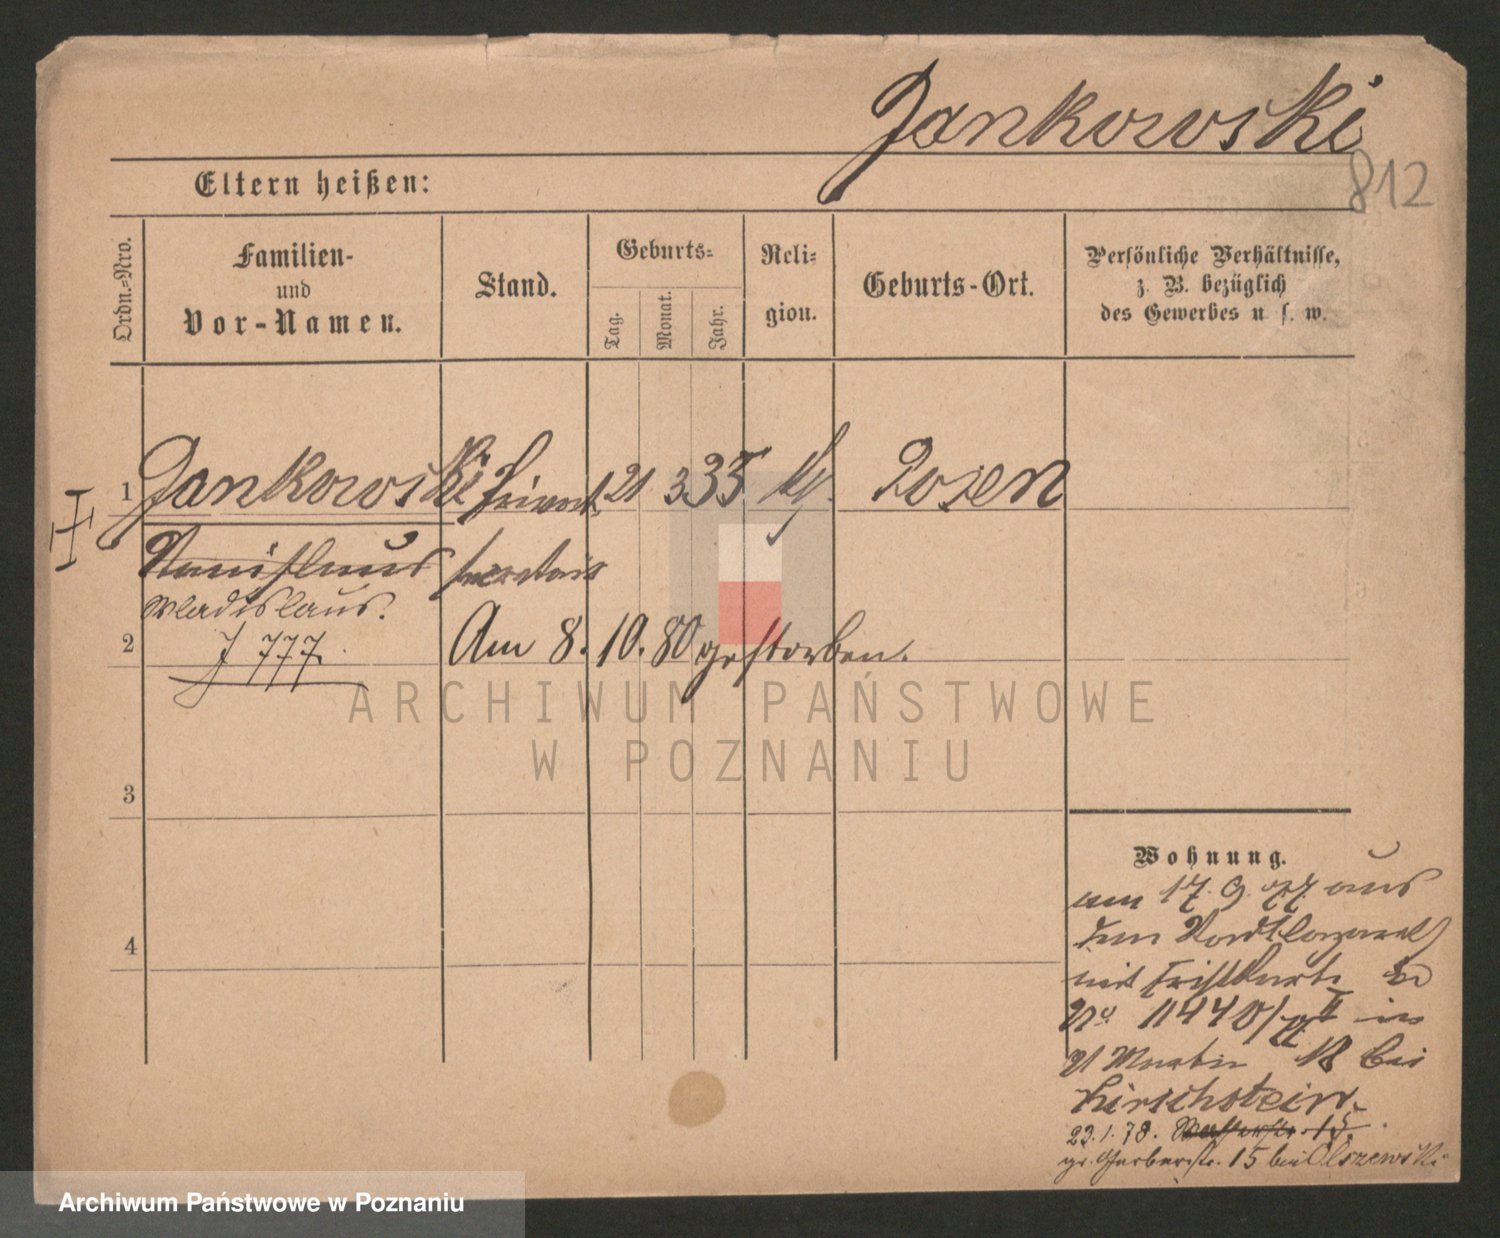 Jankowski
812
Eltern heißen:
Ordn.-Nro.
Familien-
und
Vor-Namen.
Stand.
Geburts-
Tag.
Monat.
Jahr.
Reli-
gion.
Geburts-Ort.
Persönliche Verhältnisse,
z. B. bezüglich
des Gewerbes u. s. w.
1 Jankowski Privat 21 3 35 Posen
Stanislaus secretair
Wladislaus.
2 J 777. Am 8. 10. 80 gestorben.
ARCHIWUM PAŃSTWOWE
W POZNANIU
3
Wohnung.
am 17. 9. 77. aus
dem Stadtlazareth
4
mit
No 11440/77 II in
St Martin 18 bei
Kirschstein.
23.1.78. Wasserstr. 15.
gr. Gerberstr. 15 bei Olszewski
Archiwum Państwowe w Poznaniu